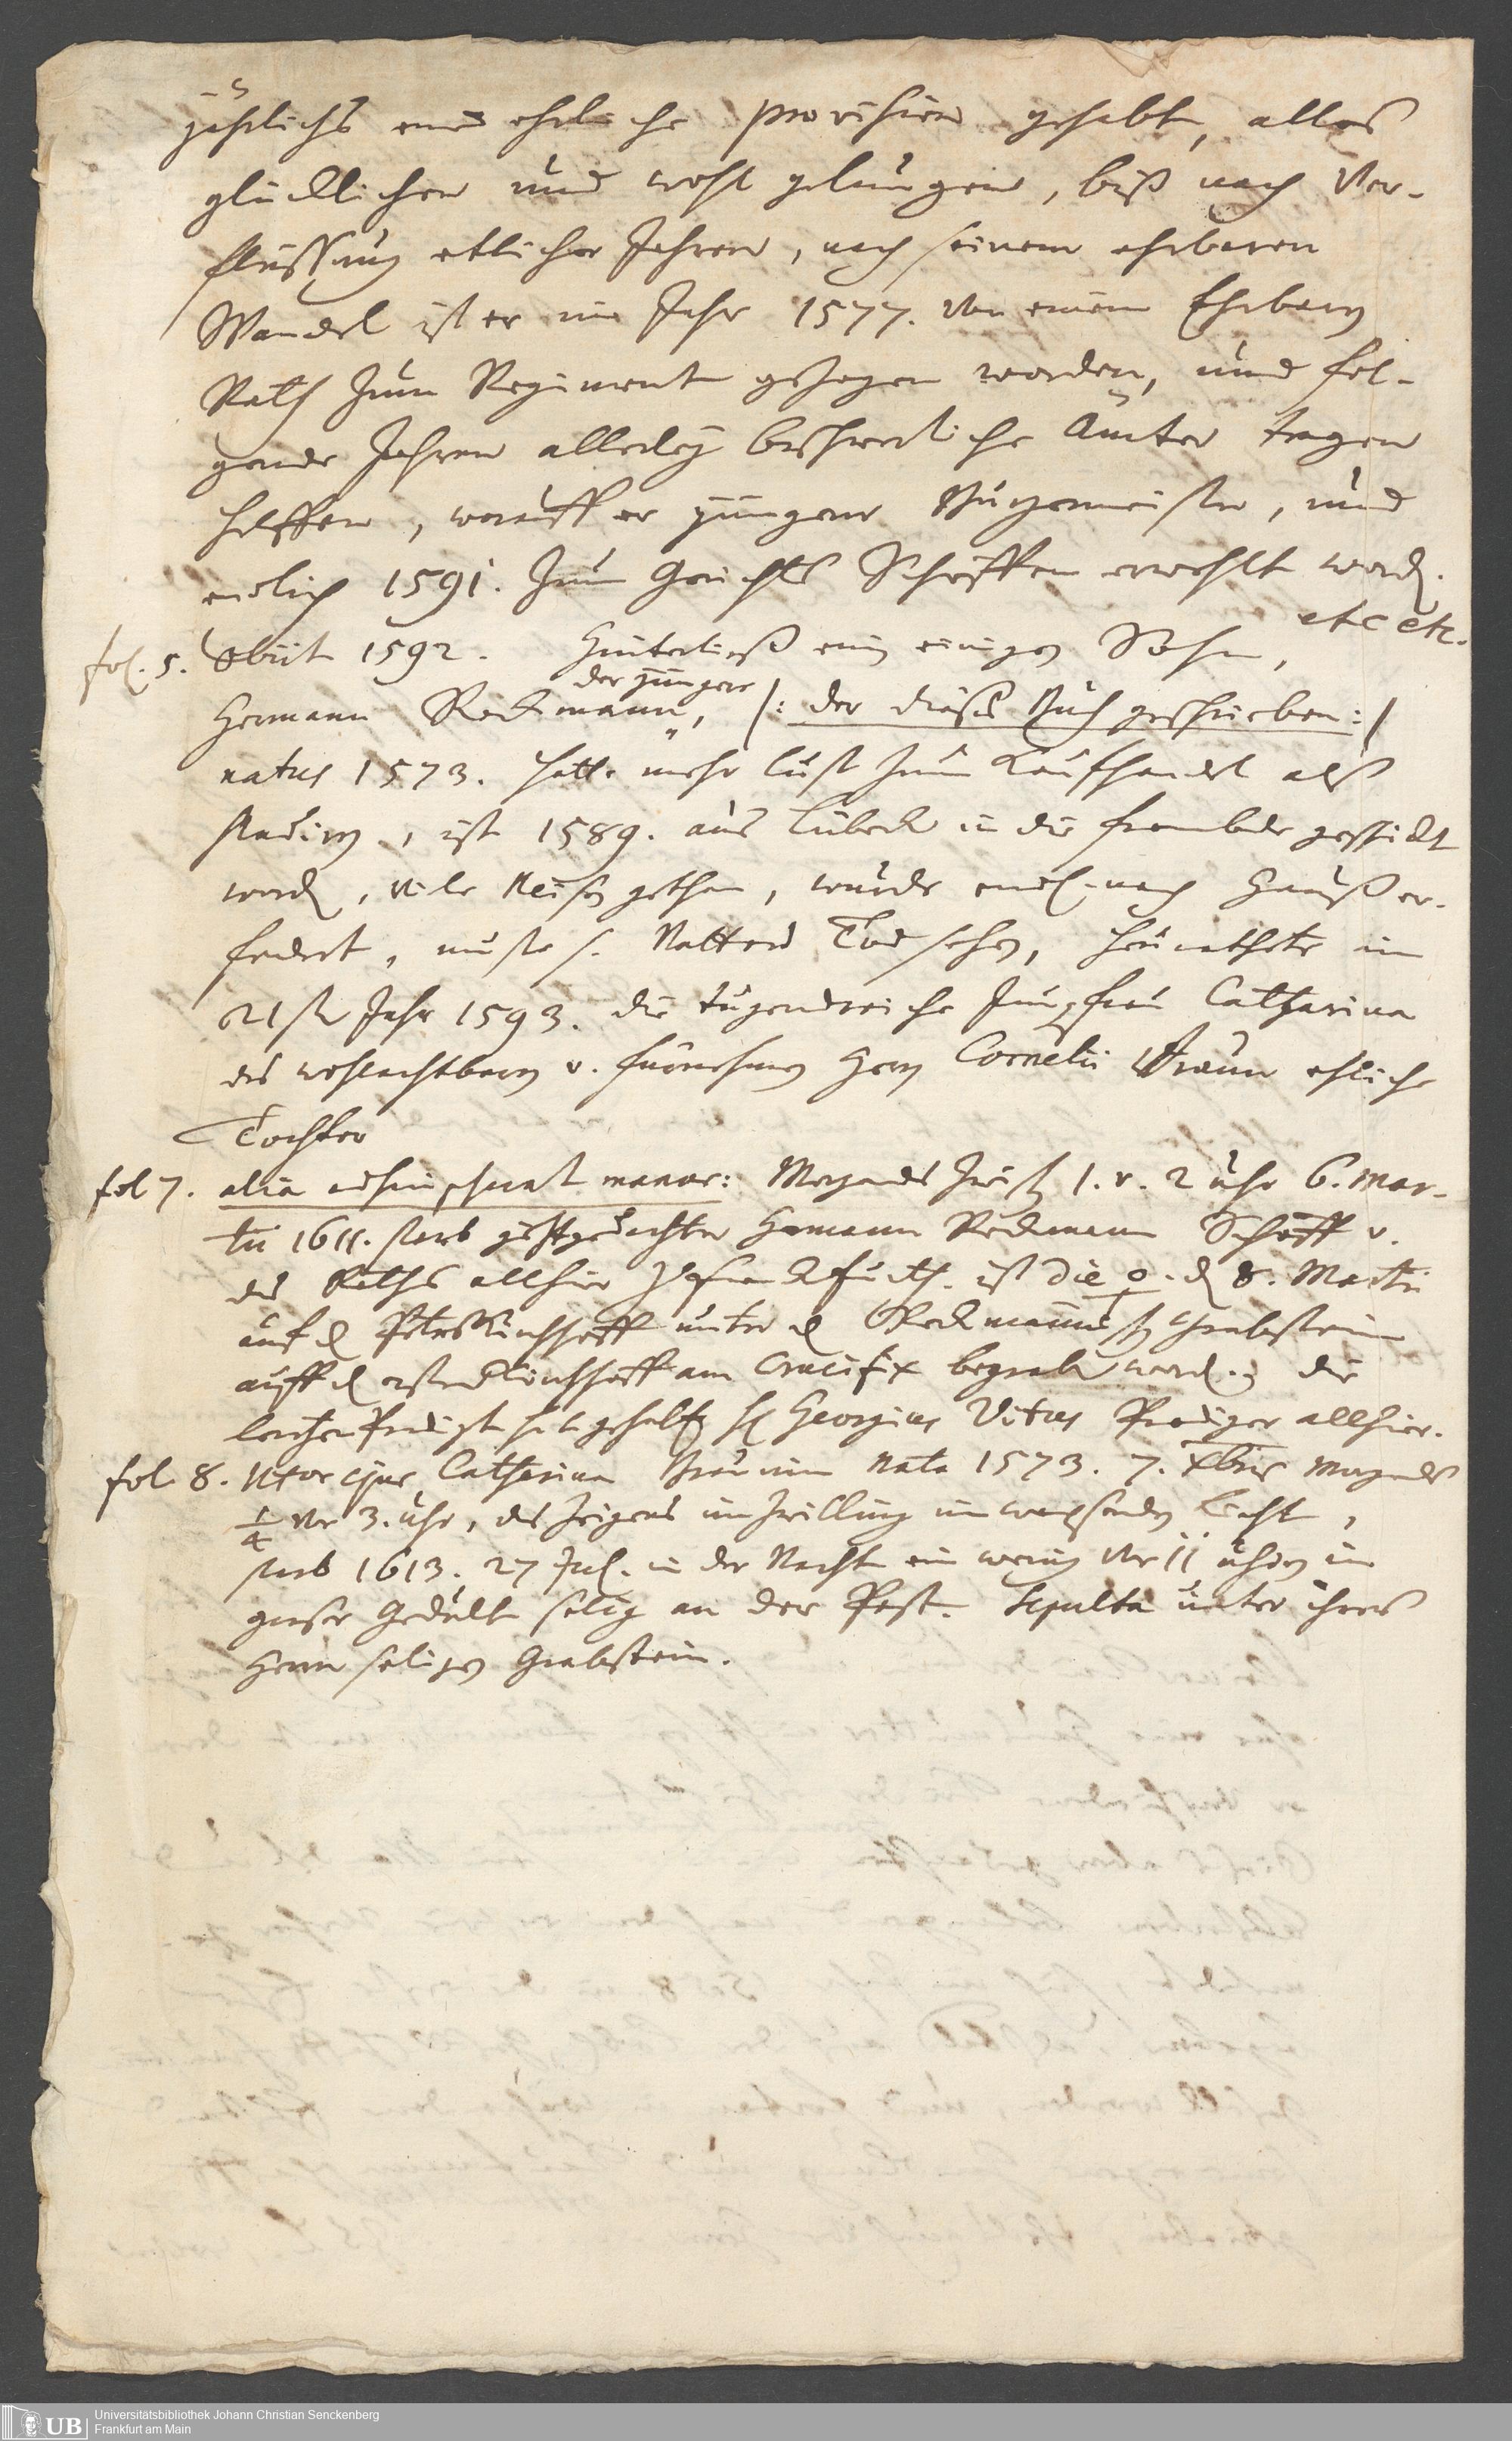 jährlichs eine ehrliche provision gehabt, alles
glücklichen und wohl gelungen, biß nach Ver-
fliessung etlicher Jahren, nach seinem ehrbaren
Wandel ist er im Jahr 1577. von einem Ehrbarn
Rath zum Regiment gezogen worden, und fol-
gende Jahren allerley beschwerliche Ämter tragen
helffen, worauff er jüngerer Bürgermeister, und
endlich 1591. zum Gerichts Schöffen erwehlt word.
etc etc.
fol. 5. Obiit 1592. Hinterließ ein einigen Sohn,
der jüngere
Hermann Reckmann, (: der dießes Buch geschrieben :)
natus 1573. hatte mehr lust zum Kaufhandel alß
studiren, ist 1589. aus Lübeck in die frembde geschickt
word, viele Reisen gethan, wurde endl. nach Hauß er-
fodert, muste s. Vatters Tod sehen, heurathete im
21sten Jahr 1593. die tugendreiche Jungfrau Catharina
des wohlachtbarn v. fürnehmen Herrn Cornelii Braun ehliche
Tochter
fol 7. alia manus: Morgends zwisch. 1. v. 2 Uhr 6. Mar-
tii 1611. starb Hermann Reckmann Schöff v.
des Raths allhier zu Franckfurth. ist die ☿. d 8. Martii
auf d Peterskirchhoff unter d Reckmannisch Grabstein
auff d ersten Kirchhoff am Crucifix begraben word. die
leichen Predigt hat gehalten H Georgius Vitus Prediger allhier.
fol 8. Uxor ejus Catharina Braunin nata 1573. 7. Xbris Morgends
1/4 vor 3. Uhr, des Zeigens im Zwilling im wachsenden Liecht,
starb 1613. 27 Jul. in der Nacht ein wenig vor 11 uhren in
großer Gedult selig an der Pest. Sepulta unter ihres
Herrn seligen Grabstein.
Universitätsbibliothek Johann Christian Senckenberg
Frankfurt am Main
UB